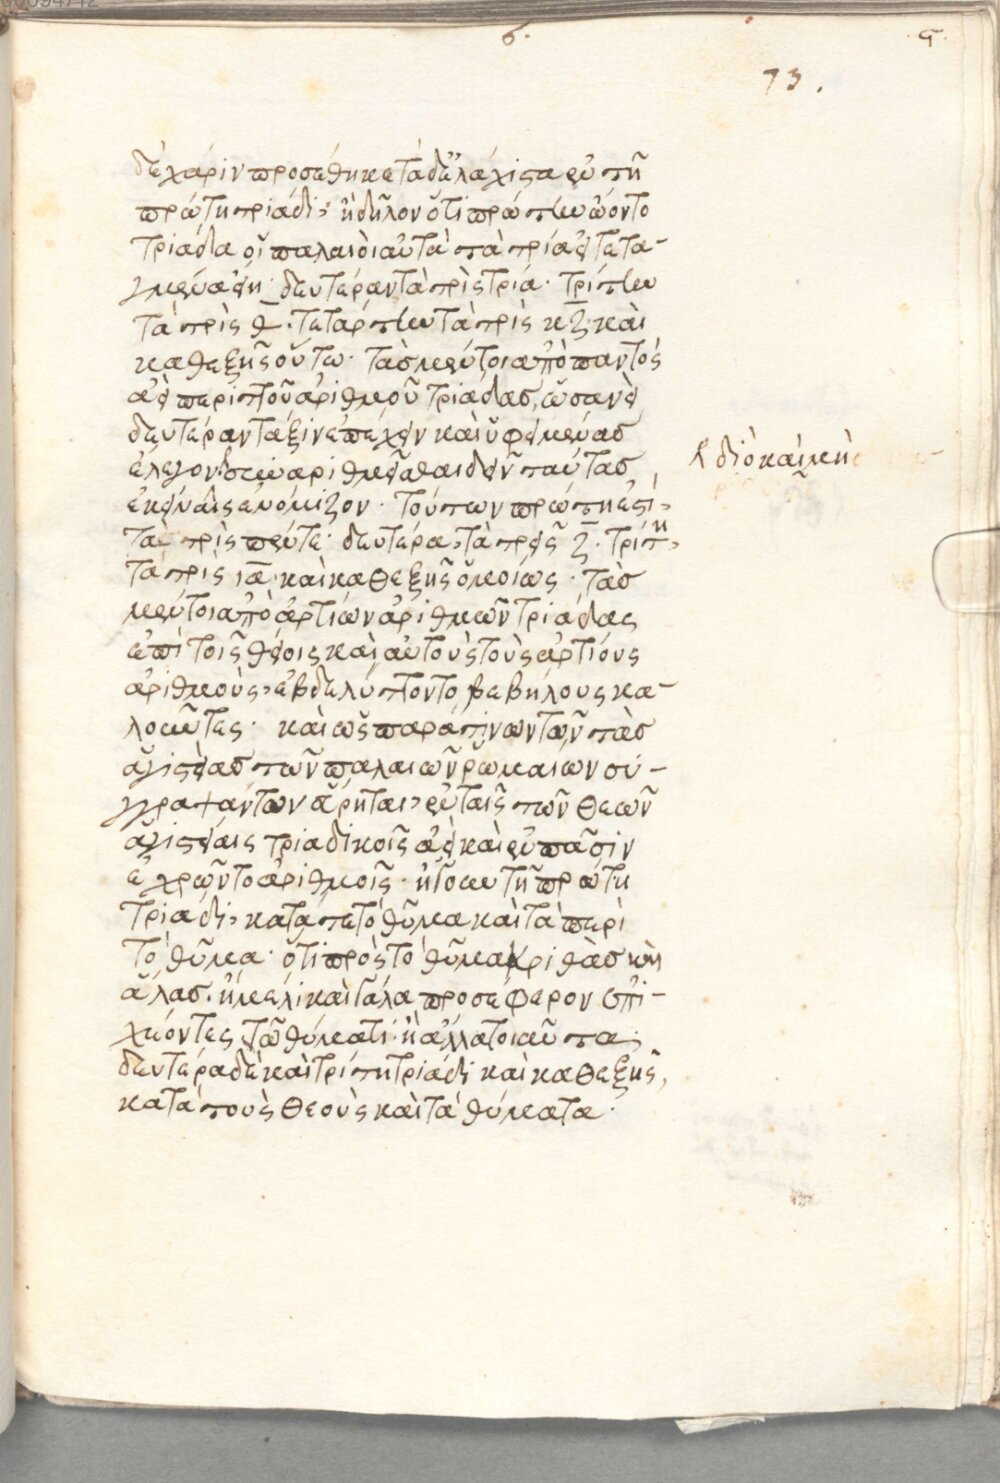 73.
δὲ χάριν προσεθήκετα δὲ ἐλάχιστα ἐν τῆ
πρώτη τριάδι· ἢ δῆλον ὅτι πρώτην ὤοντο
τριάδα οἱ παλαιοὶ αὐτὰ τὰ τρία εἰ τετα-
γμένα εἴη· δευτέραν τὰ τρὶς τρία· τρίτην
τὰ τρὶς θ̅· τετάρτην τὰ τρὶς κζ̅· καὶ
καθεξῆς οὕτω· τὰς μέντοι ἀπὸ παντὸς
ἀεὶ περιττοῦ ἀριθμοῦ τριάδας, ὡσανεὶ
δευτέραν τάξιν ἐπέχειν καὶ ὑφειμένας
ἔλεγον
ἐκείναις ἐνόμιζον· τούτων πρώτη ἐστὶ,
τὰ τρὶς πέντε· δευτέρα, τὰ τρεῖς ζ̅· τρίτη,
τὰ τρὶς ια̅· καὶ καθεξῆς ὁμοίως· τὰς
μέντοι ἀπὸ ἀρτίων ἀριθμῶν τριάδας
ἐπὶ τοῖς θείοις καὶ αὐτοὺς τοὺς ἀρτίους
ἀριθμοὺς, ἐβδελύττοντο βεβήλους κα-
λοῦντες· καὶ ὡς παρά τινων τῶν τὰς
ἁγιστείας τῶν παλαιῶν ῥωμαίων συ-
γγραψάντων εἴρηται, ἐν ταῖς τῶν θεῶν
ἁγιστείαις τριαδικοῖς ἀεὶ καὶ ἐν πᾶσιν
ἐχρῶντο ἀριθμοῖς· ἤτοι ἐν τῆ πρώτη
τριάδι, κατά τε τὸ θῦμα καὶ τὰ περὶ
τὸ θῦμα· ὅτι πρὸς τὸ θῦμα κριθὰς καὶ
ἅλας· ἢ μέλι καὶ γάλα προσέφερον ἐπι-
χέοντες τῶ θύματι· ἢ ἄλλα τοιαῦτα·
δευτέρα δὲ καὶ τρίτη τριάδι καὶ καθεξῆς,
κατὰ τοὺς θεοὺς καὶ τὰ θύματα·
διὸ καὶ μὴ